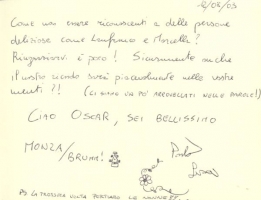 12/08/03
Come non essere riconoscenti a delle persone
deliziose come Lanfranco e Marcella?
Ringraziarvi è poco! Sicuramente anche
il vostro ricordo sarà piacevolmente nelle vostre
menti?! (CI SIAMO UN PO' ARROVELLATI NELLE PAROLE!)
CIAO OSCAR, SEI BELLISSIMO
MONZA/
BRUNA!
Paolo
PS LA PROSSIMA VOLTA PORTIAMO LE